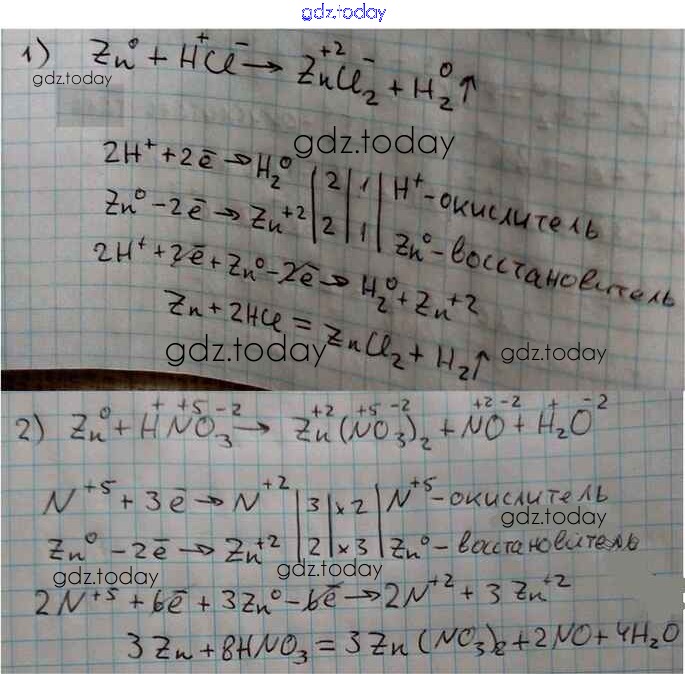 gdz.today
1) Zn⁰ + H⁺Cl⁻ → Zn⁺²Cl₂⁻ + H₂⁰↑
gdz.today
gdz.today
2H⁺ + 2ē → H₂⁰ | 2 | 1 | H⁺ - окислитель
Zn⁰ - 2ē → Zn⁺² | 2 | 1 | Zn⁰ - восстановитель
2H⁺ + 2ē + Zn⁰ - 2ē → H₂⁰ + Zn⁺²
Zn + 2HCl = ZnCl₂ + H₂↑
gdz.today gdz.today
2) Zn⁰ + H⁺N⁺⁵O₃⁻² → Zn⁺²(N⁺⁵O₃⁻²)₂ + N⁺²O⁻² + H₂⁺O⁻²
N⁺⁵ + 3ē → N⁺² | 3 | x2 | N⁺⁵ - окислитель
gdz.today
Zn⁰ - 2ē → Zn⁺² | 2 | x3 | Zn⁰ - восстановитель
gdz.today gdz.today
2N⁺⁵ + 6ē + 3Zn⁰ - 6ē → 2N⁺² + 3Zn⁺²
3Zn + 8HNO₃ = 3Zn(NO₃)₂ + 2NO + 4H₂O